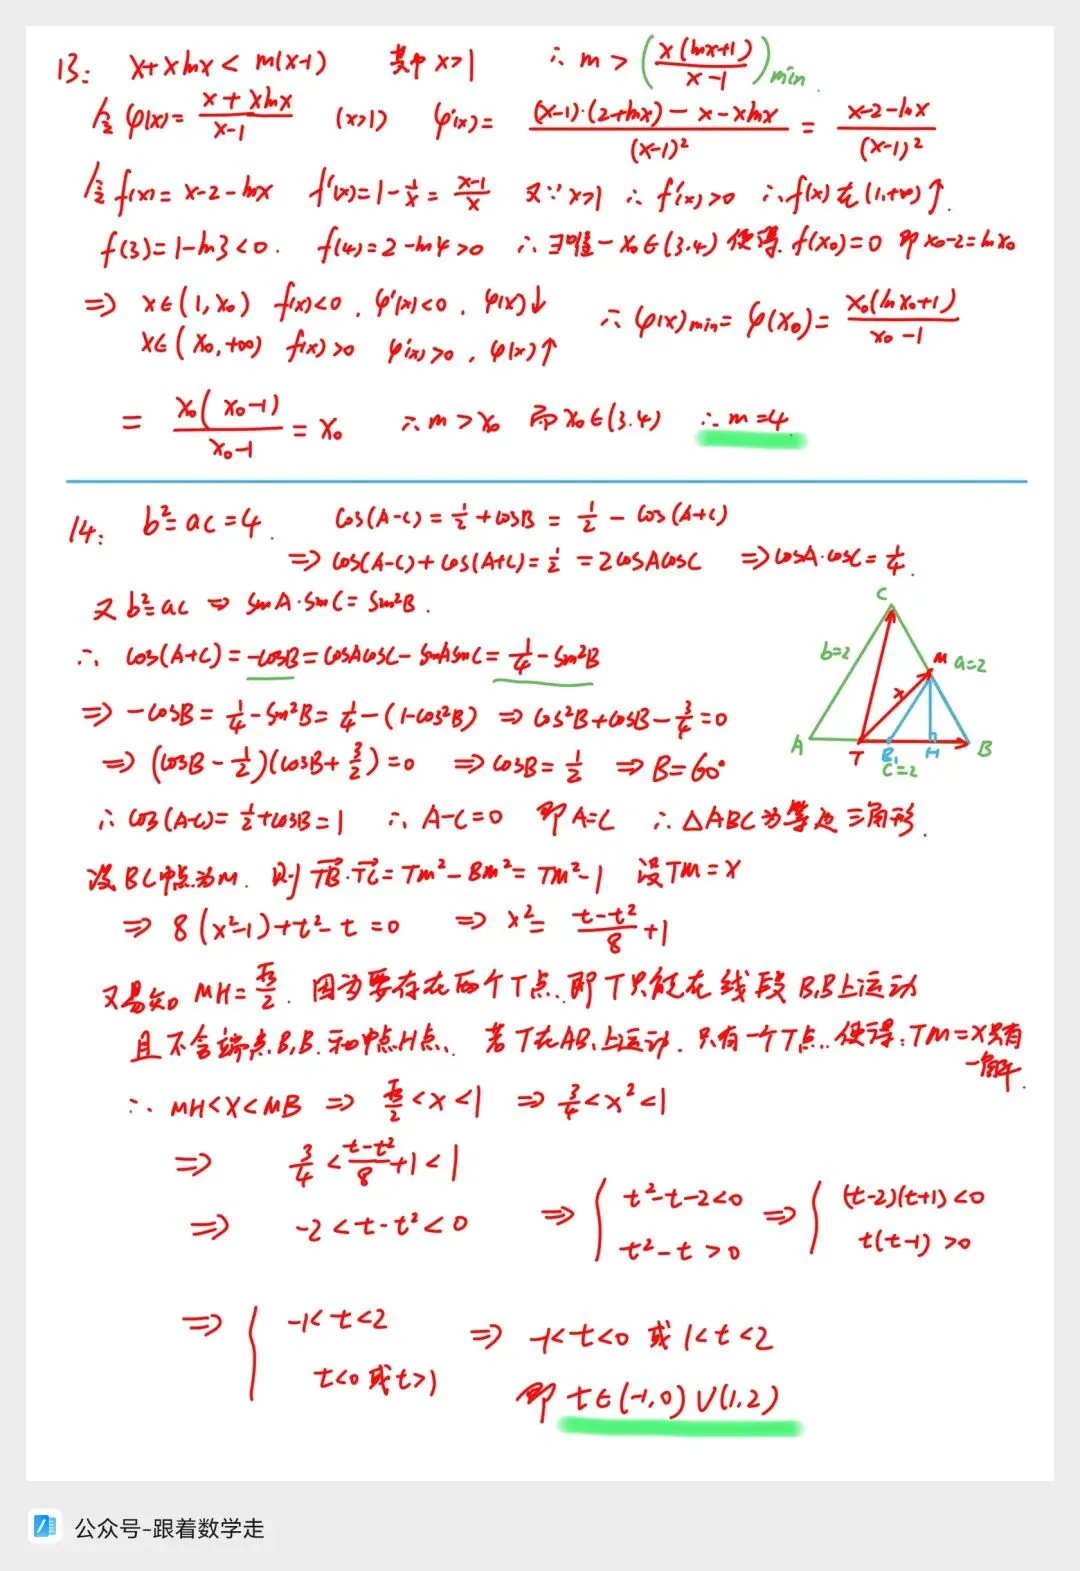 13: x+xlnx<m(x-1) 其中x>1 ∴m>(x(lnx+1)/(x-1))min
令φ(x)=(x+xlnx)/(x-1) (x>1) φ'(x)=((x-1)·(2+lnx)-x-xlnx)/(x-1)²=(x-2-lnx)/(x-1)²
令f(x)=x-2-lnx f'(x)=1-1/x=(x-1)/x 又∵x>1 ∴f'(x)>0 ∴f(x)在(1,+∞)↑.
f(3)=1-ln3<0. f(4)=2-ln4>0 ∴∃唯一x₀∈(3.4)使得.f(x₀)=0 即x₀-2=lnx₀
⇒ x∈(1,x₀) f(x)<0. φ'(x)<0. φ(x)↓
x∈(x₀,+∞) f(x)>0 φ'(x)>0. φ(x)↑
∴φ(x)min=φ(x₀)=x₀(lnx₀+1)/(x₀-1)
=x₀(x₀-1)/(x₀-1)=x₀ ∴m>x₀ 而x₀∈(3.4) ∴m=4.
14: b²=ac=4. cos(A-C)=1/2+cosB=1/2-cos(A+C)
⇒cos(A-C)+cos(A+C)=1/2=2cosAcosC ⇒cosA·cosC=1/4.
又b²=ac ⇒ sinA·sinC=sin²B.
∴ cos(A+C)=-cosB=cosAcosC-sinAsinC=1/4-sin²B
⇒-cosB=1/4-sin²B=1/4-(1-cos²B) ⇒cos²B+cosB-3/4=0
⇒(cosB-1/2)(cosB+3/2)=0 ⇒cosB=1/2 ⇒B=60°
C
b=2
M
a=2
x
A
T
B₁
H
B
C=2
∴cos(A-C)=1/2+cosB=1 ∴A-C=0 即A=C ∴△ABC为等边三角形.
设BC中点为M. 则TB·TC=TM²-BM²=TM²-1 设TM=x
⇒8(x²-1)+t²-t=0 ⇒x²=(t-t²)/8+1
又易知 MH=√3/2. 因为要存在两个T点.即T只能在线段B₁B上运动
且不含端点B₁B.和中点H点、若T在AB₁上运动.只有一个T点.使得:TM=x只有
一解.
∴MH<x<MB ⇒ √3/2<x<1 ⇒ 3/4<x²<1
⇒ 3/4<(t-t²)/8+1<1
⇒ -2<t-t²<0 ⇒{t²-t-2<0 ⇒{(t-2)(t+1)<0
t²-t>0 t(t-1)>0
⇒{-1<t<2 ⇒ -1<t<0 或 1<t<2
t<0或t>1
即 t∈(-1,0)∪(1.2)
公众号-跟着数学走